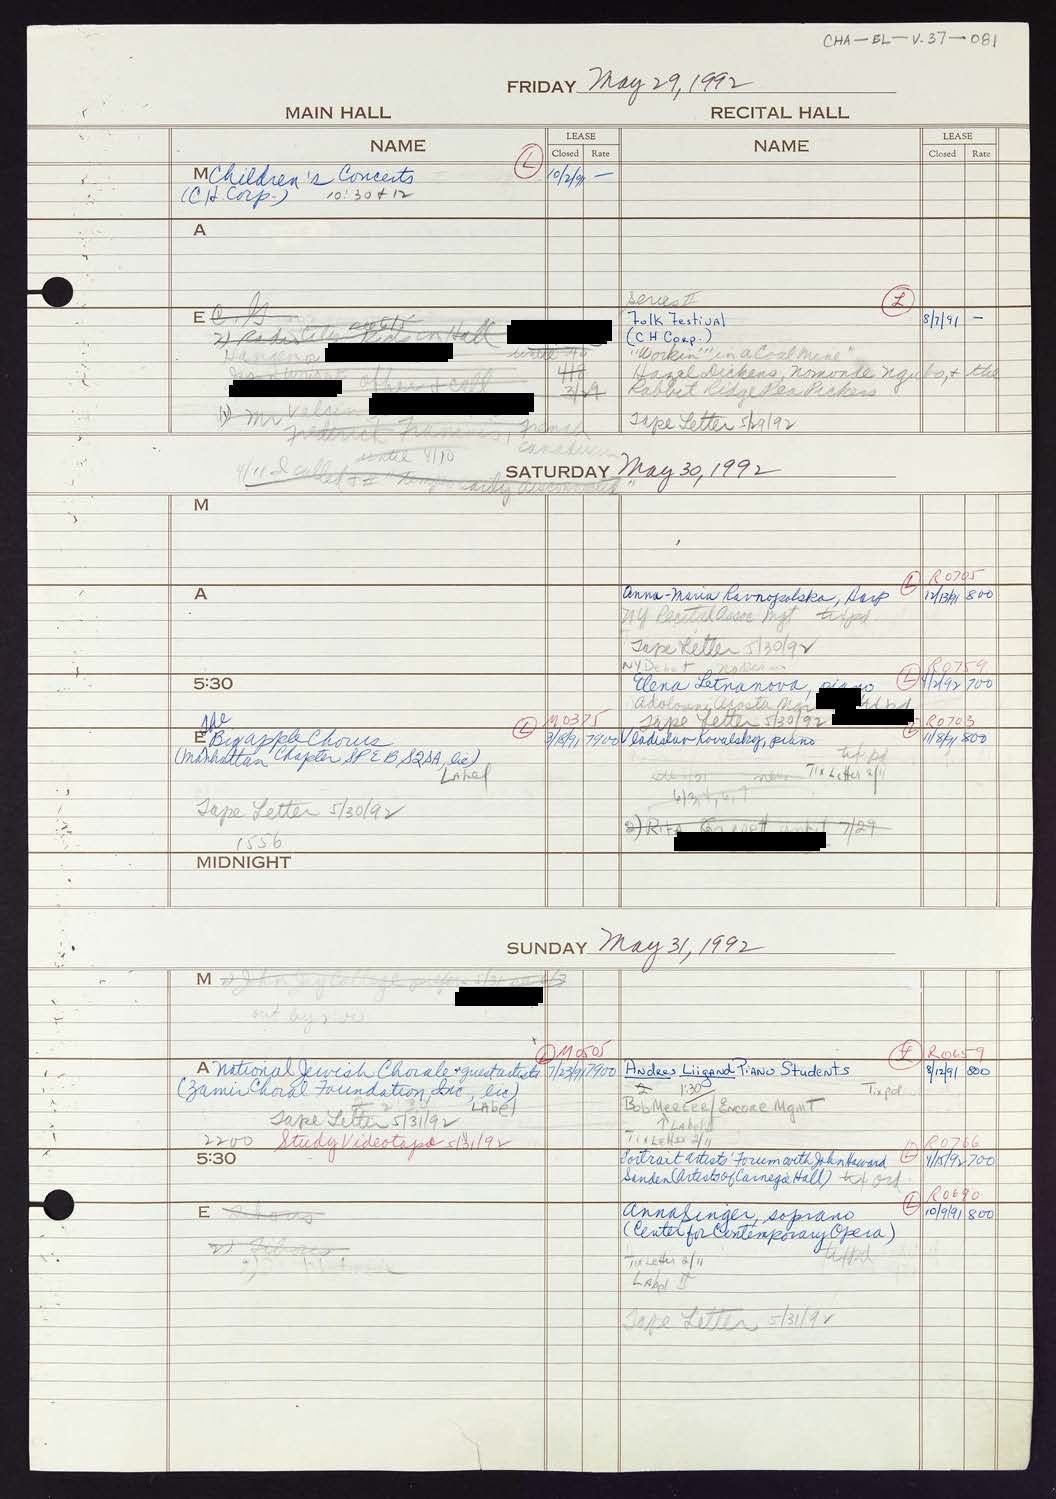 CHA-BL-V.37-081
FRIDAY May 29, 1992
MAIN HALL
RECITAL HALL
NAME
LEASE
Closed Rate
NAME
LEASE
Closed Rate
M Children's Concerts L 10/2/91 —
(CH Corp.) 10:30 & 12
A
Series II L
E
Folk Festival 8/7/91 —
(CH Corp.)
2) Radio City Hall
"Workin' in a Coal Mine"
until
Hazel Dickens, Nomonde Ngubo, & the
4/8
Rabbit Ridge Pea Pickers
3/29
1) Mr
Tape Letter 5/29/92
Frederick
until 4/10
4/11 I called
SATURDAY May 30, 1992
M
L R0705
A
Anna-Maria Ravnopolska, Harp 12/13/91 800
NY Recital Assoc Mgt tix pd
Tape Letter 5/30/92
NY Debut L R0759
5:30
Elena Letnanova, piano 4/2/92 700
Tape Letter 5/30/92
L R0703
The
L M0375
E Big Apple Chorus 3/8/91 7900
Vladislav Kovalsky, piano 11/8/91 800
(Manhattan Chapter SPEBSQSA, Inc)
Label
tix pd
Tix Letter 2/11
Tape Letter 5/30/92
1556
2) Rita until 7/29
MIDNIGHT
SUNDAY May 31, 1992
M John Jay College
L M0505
L R0659
A National Jewish Chorale & guest artists 7/23/91 7900
(Zamir Choral Foundation, Inc, lic)
Label
Tape Letter 5/31/92
2200 Study Videotape 5/31/92
Andres Liigand Piano Students 8/12/91 800
1:30 Tix pd
Bob Mercer/Encore Mgmt
↑ Label
Tix Letter 2/11
L R0766
5:30
Portrait Artists' Forum with John Howard 4/15/92 700
Sanden (Artists of Carnegie Hall) tix ord
L R0690
E
Anna Singer, soprano 10/9/91 800
(Center for Contemporary Opera)
tix pd
Tix Letter 2/11
Label II
Tape Letter 5/31/92